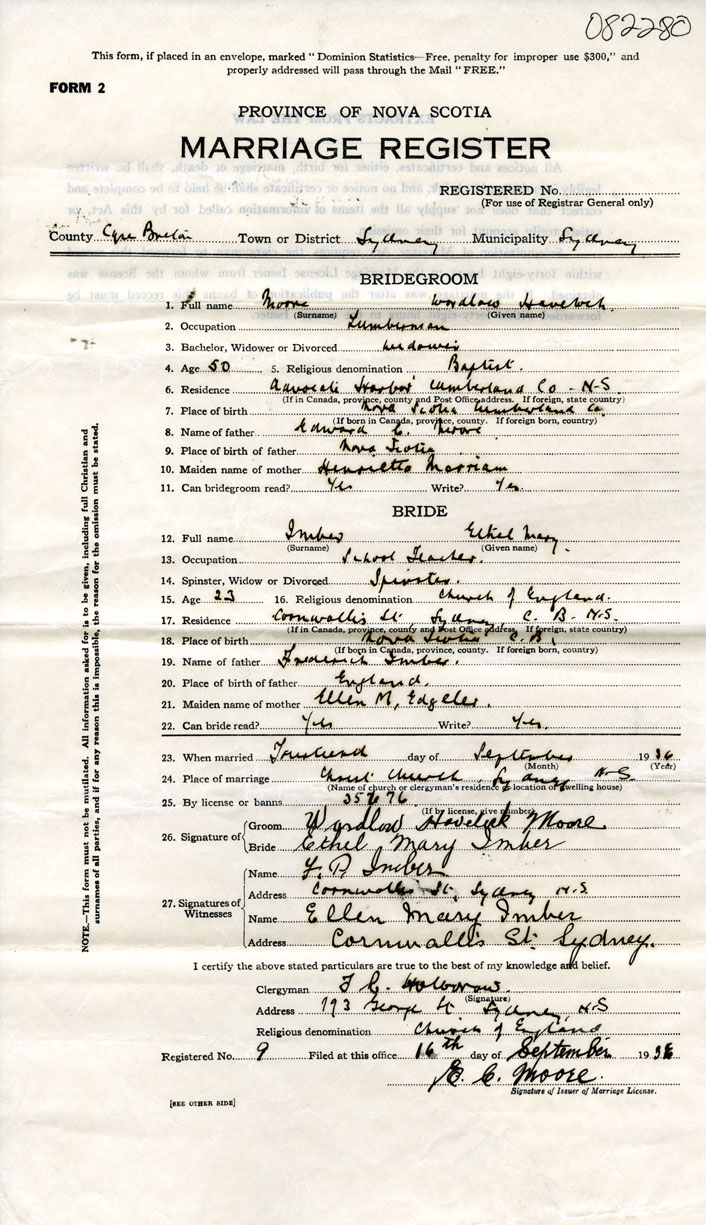 082280
This form, if placed in an envelope, marked "Dominion Statistics—Free, penalty for improper use $300," and
properly addressed will pass through the Mail "FREE."
FORM 2
PROVINCE OF NOVA SCOTIA
MARRIAGE REGISTER
REGISTERED No.
(For use of Registrar General only)
County Cape Breton Town or District Sydney Municipality Sydney
BRIDEGROOM
1. Full name Moore Wordlow Havelock
(Surname) (Given name)
2. Occupation Lumberman
3. Bachelor, Widower or Divorced widower
4. Age 50 5. Religious denomination Baptist.
6. Residence Advocate Harbor Cumberland Co - N-S.
(If in Canada, province, county and Post Office address. If foreign, state country)
7. Place of birth Nova Scotia Cumberland Co.
(If born in Canada, province, county. If foreign born, country)
8. Name of father Edward C. Moore
9. Place of birth of father Nova Scotia
10. Maiden name of mother Henrietta Morriam
11. Can bridegroom read? Yes Write? Yes.
BRIDE
12. Full name Imber Ethel Mary.
(Surname) (Given name)
13. Occupation School Teacher.
14. Spinster, Widow or Divorced Spinster.
15. Age 23 16. Religious denomination Church of England.
17. Residence Cornwallis St, Sydney, C. B- N-S.
(If in Canada, province, county and Post Office address. If foreign, state country)
18. Place of birth Nova Scotia C.B.
(If born in Canada, province, county. If foreign born, country)
19. Name of father Frederick Imber.
20. Place of birth of father England.
21. Maiden name of mother Ellen M, Edgeler.
22. Can bride read? Yes Write? Yes.
23. When married day of September 1936
(Month) (Year)
24. Place of marriage Christ Church, Sydney N-S
(Name of church or clergyman's residence & location of dwelling house)
25. By license or banns 35676
(If by license, give number)
26. Signature of Groom Wordlow Havelock Moore
Bride Ethel Mary Imber
27. Signatures of Witnesses Name F. P. Imber
Address Cornwallis St, Sydney N.S.
Name Ellen Mary Imber
Address Cornwallis St. Sydney.
I certify the above stated particulars are true to the best of my knowledge and belief.
Clergyman
(Signature)
Address 793 George St. Sydney, N.S
Religious denomination Church of England
Registered No. 9 Filed at this office 16th day of September 1936
E. C. Moore.
Signature of Issuer of Marriage License.
[SEE OTHER SIDE]
NOTE.—This form must not be mutilated. All information asked for is to be given, including full Christian and
surnames of all parties, and if for any reason this is impossible, the reason for the omission must be stated.